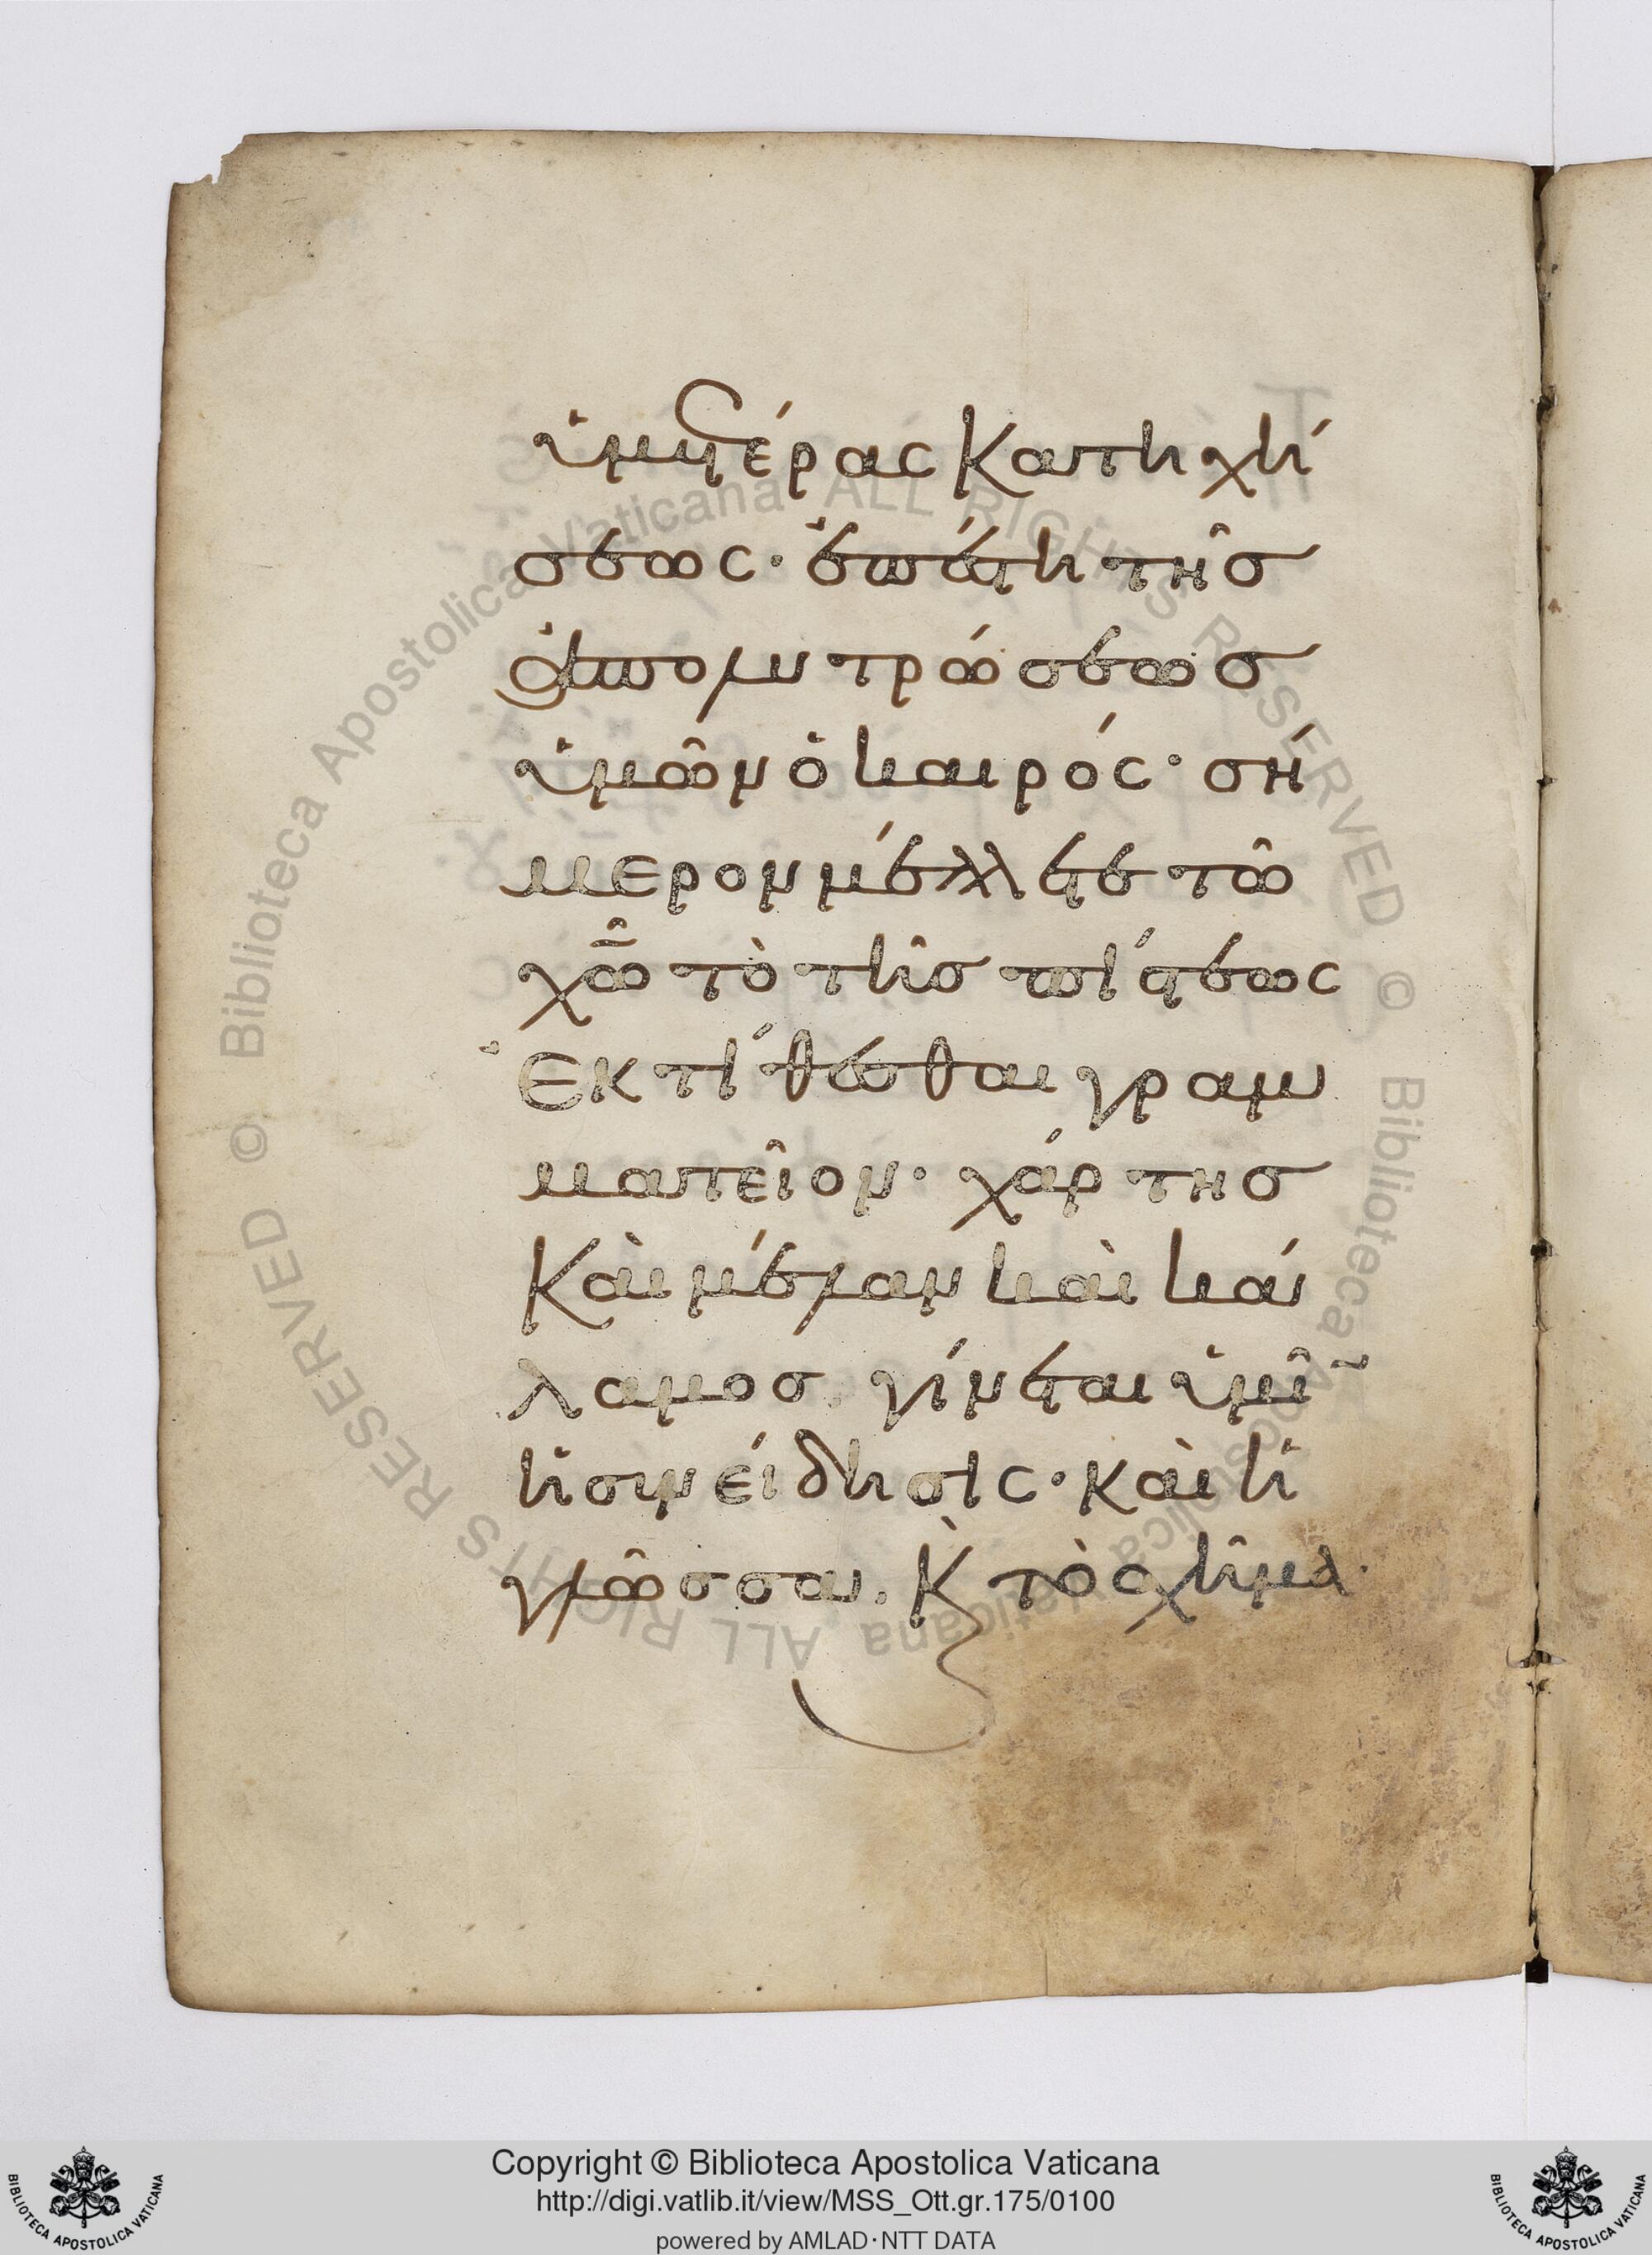 ὑμετέρας κατηχή
σεως· ἐπέστη τῆς
ἀπολυτρώσεως
ὑμῶν ὁ καιρός· σή
μερον μέλλετε τῶ
χῶ τὸ τῆς πίστεως
ἐκτίθεσθαι γραμ
ματεῖον· χάρτης
καὶ μέλαν καὶ κά
λαμος γίνεται ὑμῖ
ἡ συνείδησις· καὶ ἡ
γλῶσσα. κ τὸ σχῆμα·
Copyright © Biblioteca Apostolica Vaticana
http://digi.vatlib.it/view/MSS_Ott.gr.175/0100
powered by AMLAD·NTT DATA
BIBLIOTECA APOSTOLICA VATICANA
BIBLIOTECA APOSTOLICA VATICANA
© Biblioteca Apostolica Vaticana ALL RIGHTS RESERVED © Biblioteca Apostolica Vaticana ALL RIGHTS RESERVED